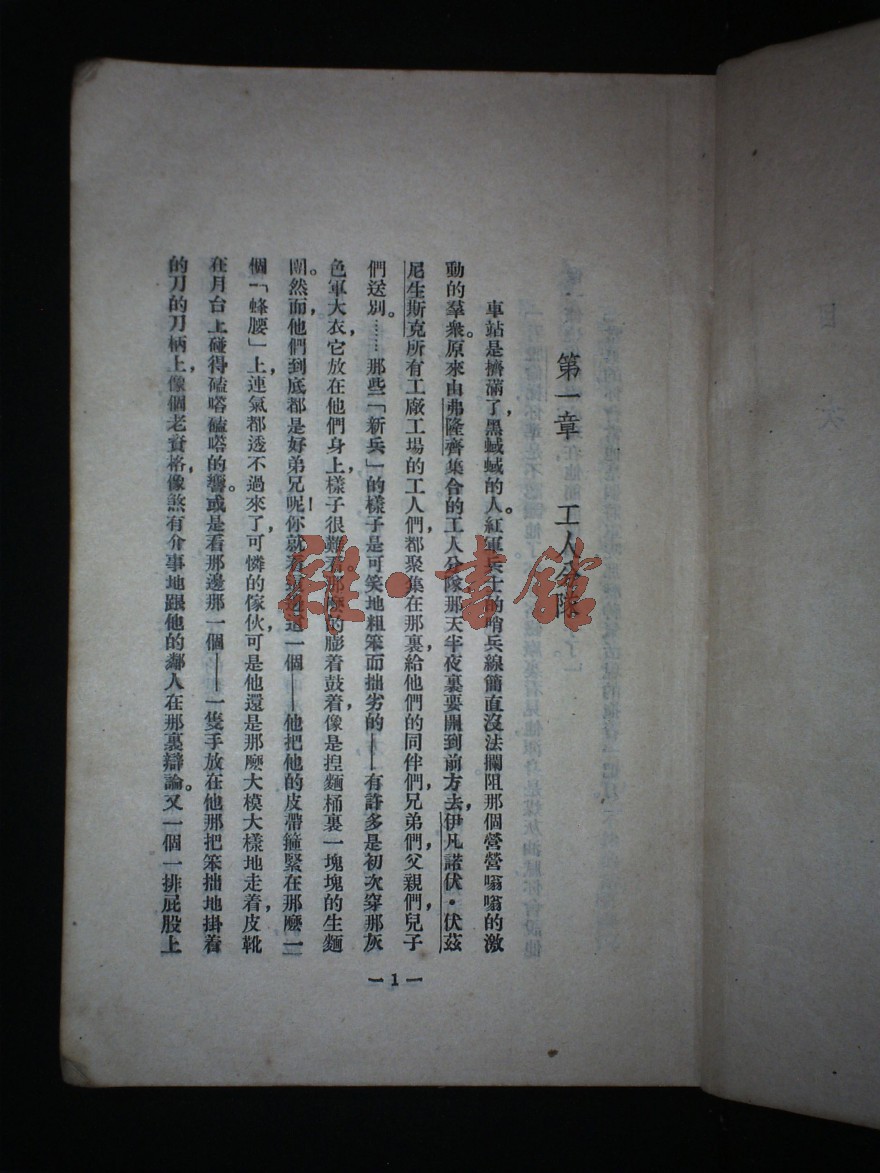 第一章 工人分隊
車站是擠滿了,黑蜮蜮的人。紅軍兵士的哨兵線簡直沒法攔阻那個營營嗡嗡的激
動的羣衆。原來由弗隆齊集合的工人分隊那天半夜裏要開到前方去,伊凡諾伏·伏茲
尼生斯克所有工廠工場的工人們都聚集在那裏給他們的同伴們,兄弟們,父親們,兒子
們送別。……那些「新兵」的樣子是可笑地粗笨而拙劣的——有許多是初次穿那灰
色軍大衣,它放在他們身上樣子很難看,那麼的膨着鼓着,像是揑麵桶裏一塊塊的生麵
團。然而,他們到底都是好弟兄呢!你就看這一個——他把他的皮帶箍緊在那麼一
個「蜂腰」上,連氣都透不過來了,可憐的傢伙,可是他還是那麼大模大樣地走着,皮靴
在月台上碰得磕嗒磕嗒的響。或是看那邊那一個——一隻手放在他那把笨拙地掛着
的刀的刀柄上,像個老資格,像煞有介事地跟他的鄰人在那裏辯論。又一個一排屁股上
—1—
目 次
雜·書館